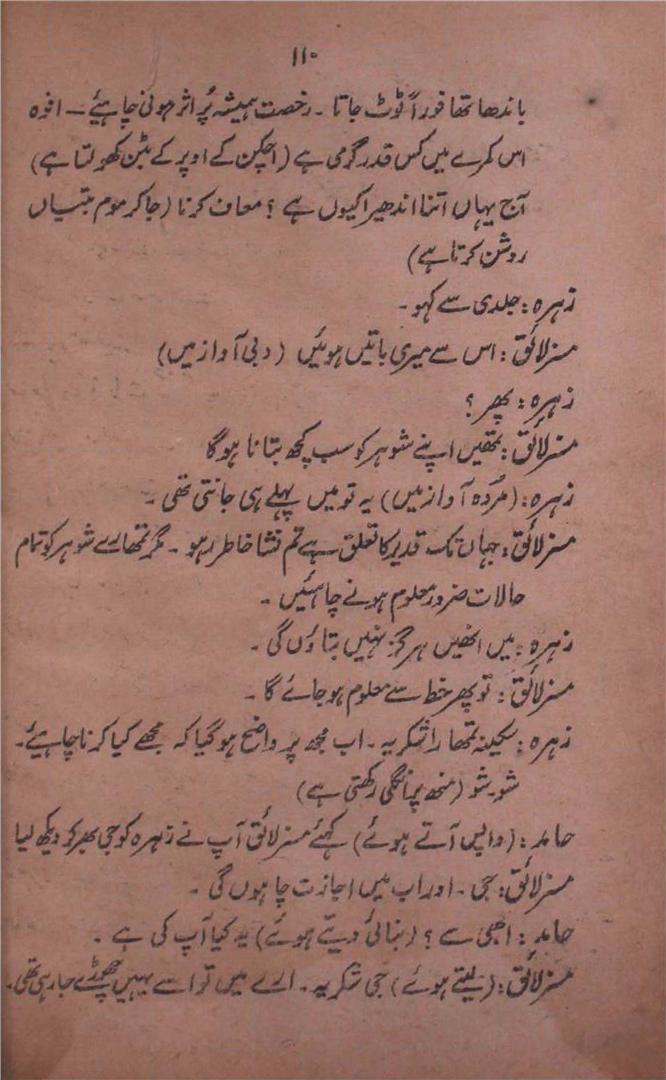 ۱۱۰
باندھا تھا فوراً ٹوٹ جاتا ۔ رخصت ہمیشہ پُر اثر ہونی چاہیئے ۔ افوہ
اس کمرے میں کس قدر گرمی ہے (اچکن کے اوپر کے بٹن کھولتا ہے)
آج یہاں اتنا اندھیرا کیوں ہے ؟ معاف کرنا (جا کر موم بتیاں
روشن کرتا ہے)
زہرہ : جلدی سے کہو ۔
مسز لائق : اس سے میری باتیں ہوئیں (دبی آواز میں)
زہرہ : پھر ؟
مسز لائق : تمھیں اپنے شوہر کو سب کچھ بتانا ہوگا
زہرہ : (مُردہ آواز میں) یہ تو میں پہلے ہی جانتی تھی ۔
مسز لائق : جہاں تک قدیر کا تعلق ہے تم نشا خاطر رہو ۔ مگر تمھارے شوہر کو تمام
حالات ضرور معلوم ہونے چاہئیں ۔
زہرہ : میں انھیں ہرگز نہیں بتاؤں گی ۔
مسز لائق : تو پھر خط سے معلوم ہو جائے گا ۔
زہرہ : سکینہ تمھارا شکریہ ۔ اب مجھ پر واضح ہو گیا کہ مجھے کیا کرنا چاہیئے ۔
شو ۔ شو (منھ پر انگلی رکھتی ہے)
حامد : (واپس آتے ہوئے) کہئے مسز لائق آپ نے زہرہ کو جی بھر کر دیکھ لیا
مسز لائق : جی ۔ اور اب میں اجازت چاہوں گی ۔
حامد : ابھی سے ؟ (بنائی دیتے ہوئے) یہ کیا آپ کی ہے ۔
مسز لائق : (لیتے ہوئے) جی شکریہ ۔ ارے میں تو اسے یہیں چھوڑے جا رہی تھی ۔